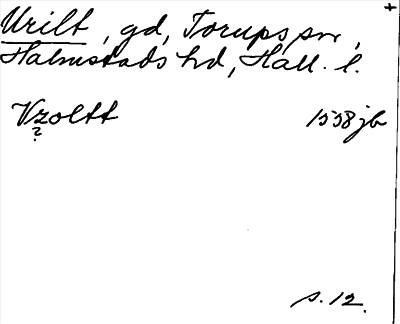 +
Urilt, gd, Torups sn,
Halmstads hd, Hall. l.
Vzoltt 1558 jb
?
s. 12.